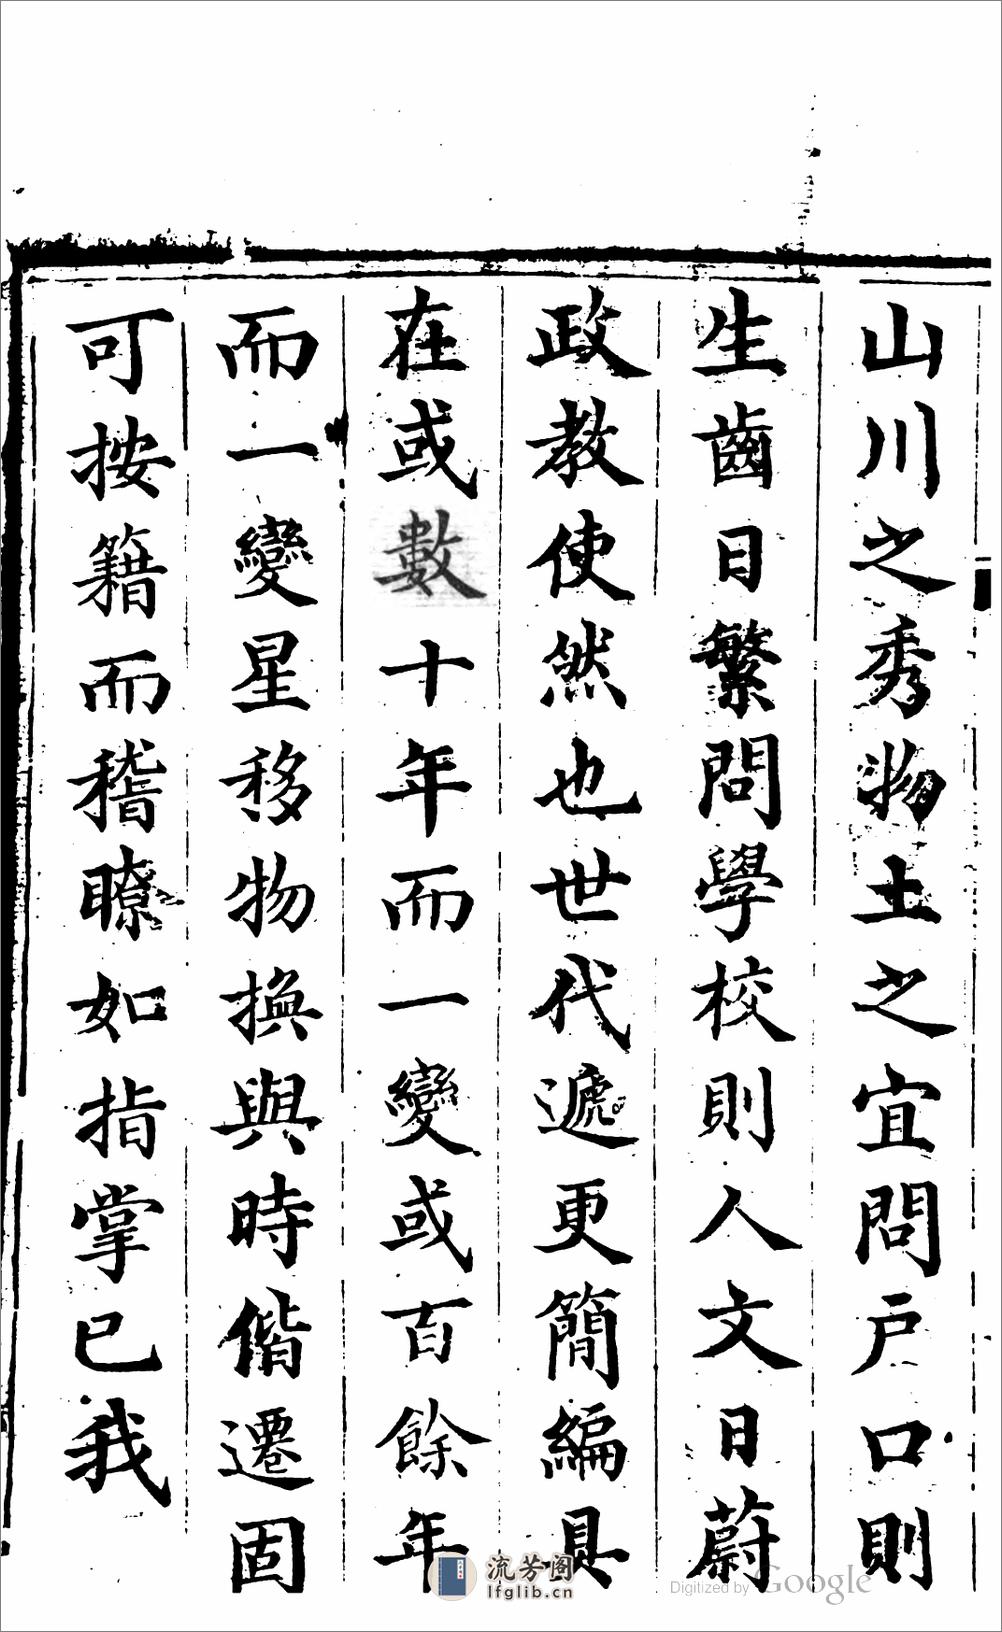 山川之秀物土之宜問戶口則
生齒日繁問學校則人文日蔚
政教使然也世代遞更簡編具
在或數十年而一變或百餘年
而一變星移物換與時偕遷固
可按籍而稽瞭如指掌已我
流芳阁
lfglib.cn
Digitized by Google